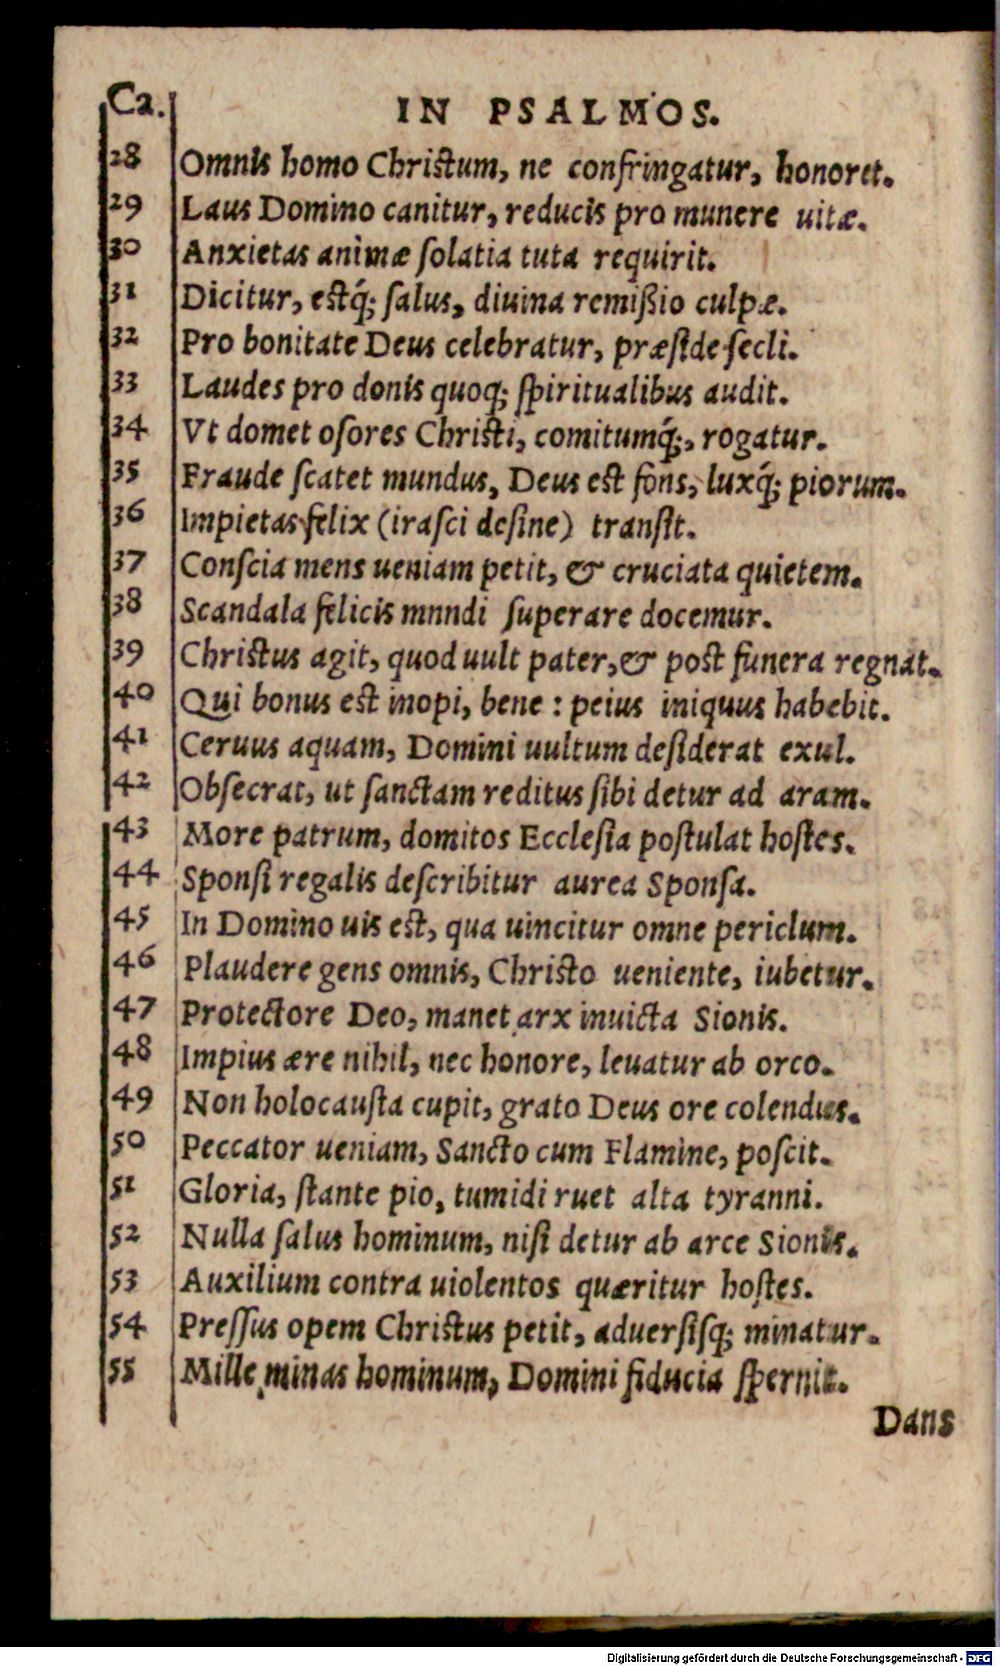 Ca. IN PSALMOS.
28 Omnis homo Christum, ne confringatur, honoret.
29 Laus Domino canitur, reducis pro munere uitæ.
30 Anxietas animæ ſolatia tuta requirit.
31 Dicitur, eſtq́; ſalus, diuina remißio culpæ.
32 Pro bonitate Deus celebratur, præſide ſecli.
33 Laudes pro donis quoq; ſpiritualibus audit.
34 Vt domet oſores Chriſti, comitumq́;, rogatur.
35 Fraude ſcatet mundus, Deus eſt fons, luxq́; piorum.
36 Impietas felix (iraſci deſine) tranſit.
37 Conſcia mens ueniam petit, & cruciata quietem.
38 Scandala felicis mnndi ſuperare docemur.
39 Chriſtus agit, quod uult pater, & poſt funera regnat.
40 Qui bonus eſt inopi, bene : peius iniquus habebit.
41 Ceruus aquam, Domini uultum deſiderat exul.
42 Obſecrat, ut ſanctam reditus ſibi detur ad aram.
43 More patrum, domitos Eccleſia poſtulat hoſtes.
44 Sponſi regalis deſcribitur aurea Sponſa.
45 In Domino uis eſt, qua uincitur omne periclum.
46 Plaudere gens omnis, Chriſto ueniente, iubetur.
47 Protectore Deo, manet arx inuicta Sionis.
48 Impius ære nihil, nec honore, leuatur ab orco.
49 Non holocauſta cupit, grato Deus ore colendus.
50 Peccator ueniam, Sancto cum Flamine, poſcit.
51 Gloria, ſtante pio, tumidi ruet alta tyranni.
52 Nulla ſalus hominum, niſi detur ab arce Sionis.
53 Auxilium contra uiolentos quæritur hoſtes.
54 Preſſus opem Chriſtus petit, aduerſiſq; minatur.
55 Mille minas hominum, Domini fiducia ſpernit.
Dans
Digitalisierung gefördert durch die Deutsche Forschungsgemeinschaft - DFG